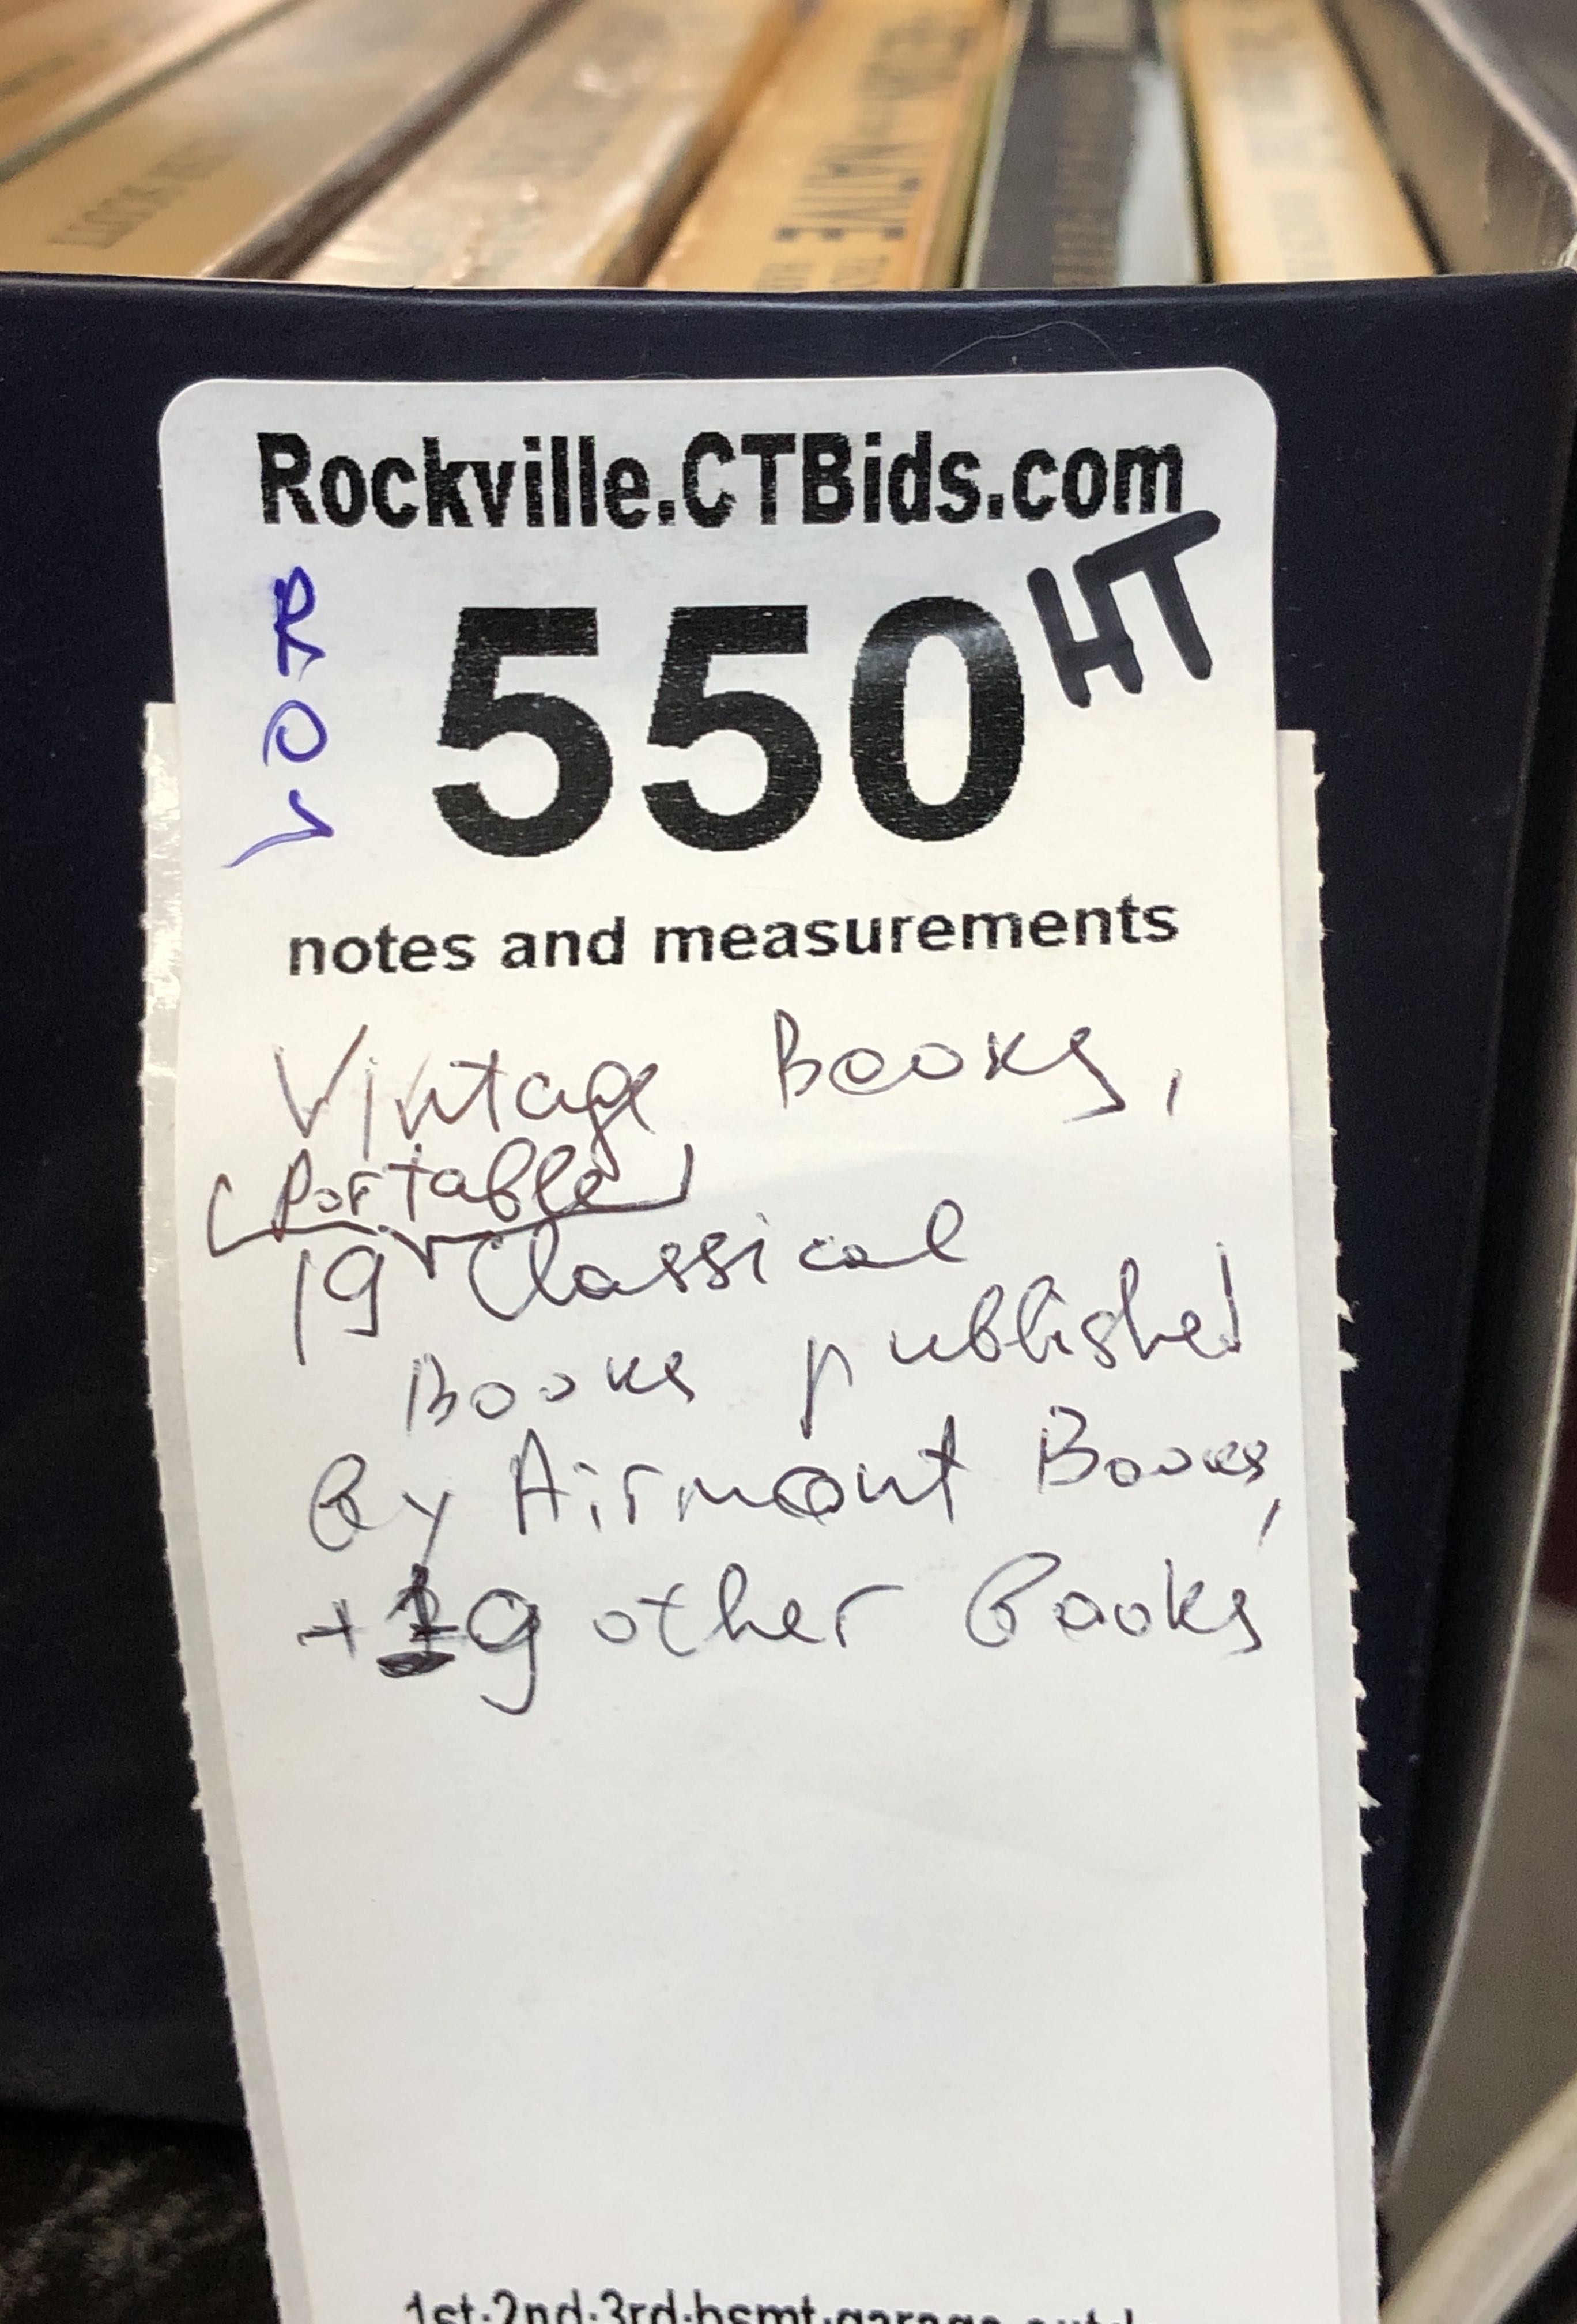 SIR WALTER SCOTT
NATIVE
Rockville.CTBids.com
550 HT
notes and measurements
Vintage Books,
Portable
19 Classical
Books published
By Airmont Books,
+ 9 other Books
1st-2nd-3rd-bsmt-garage